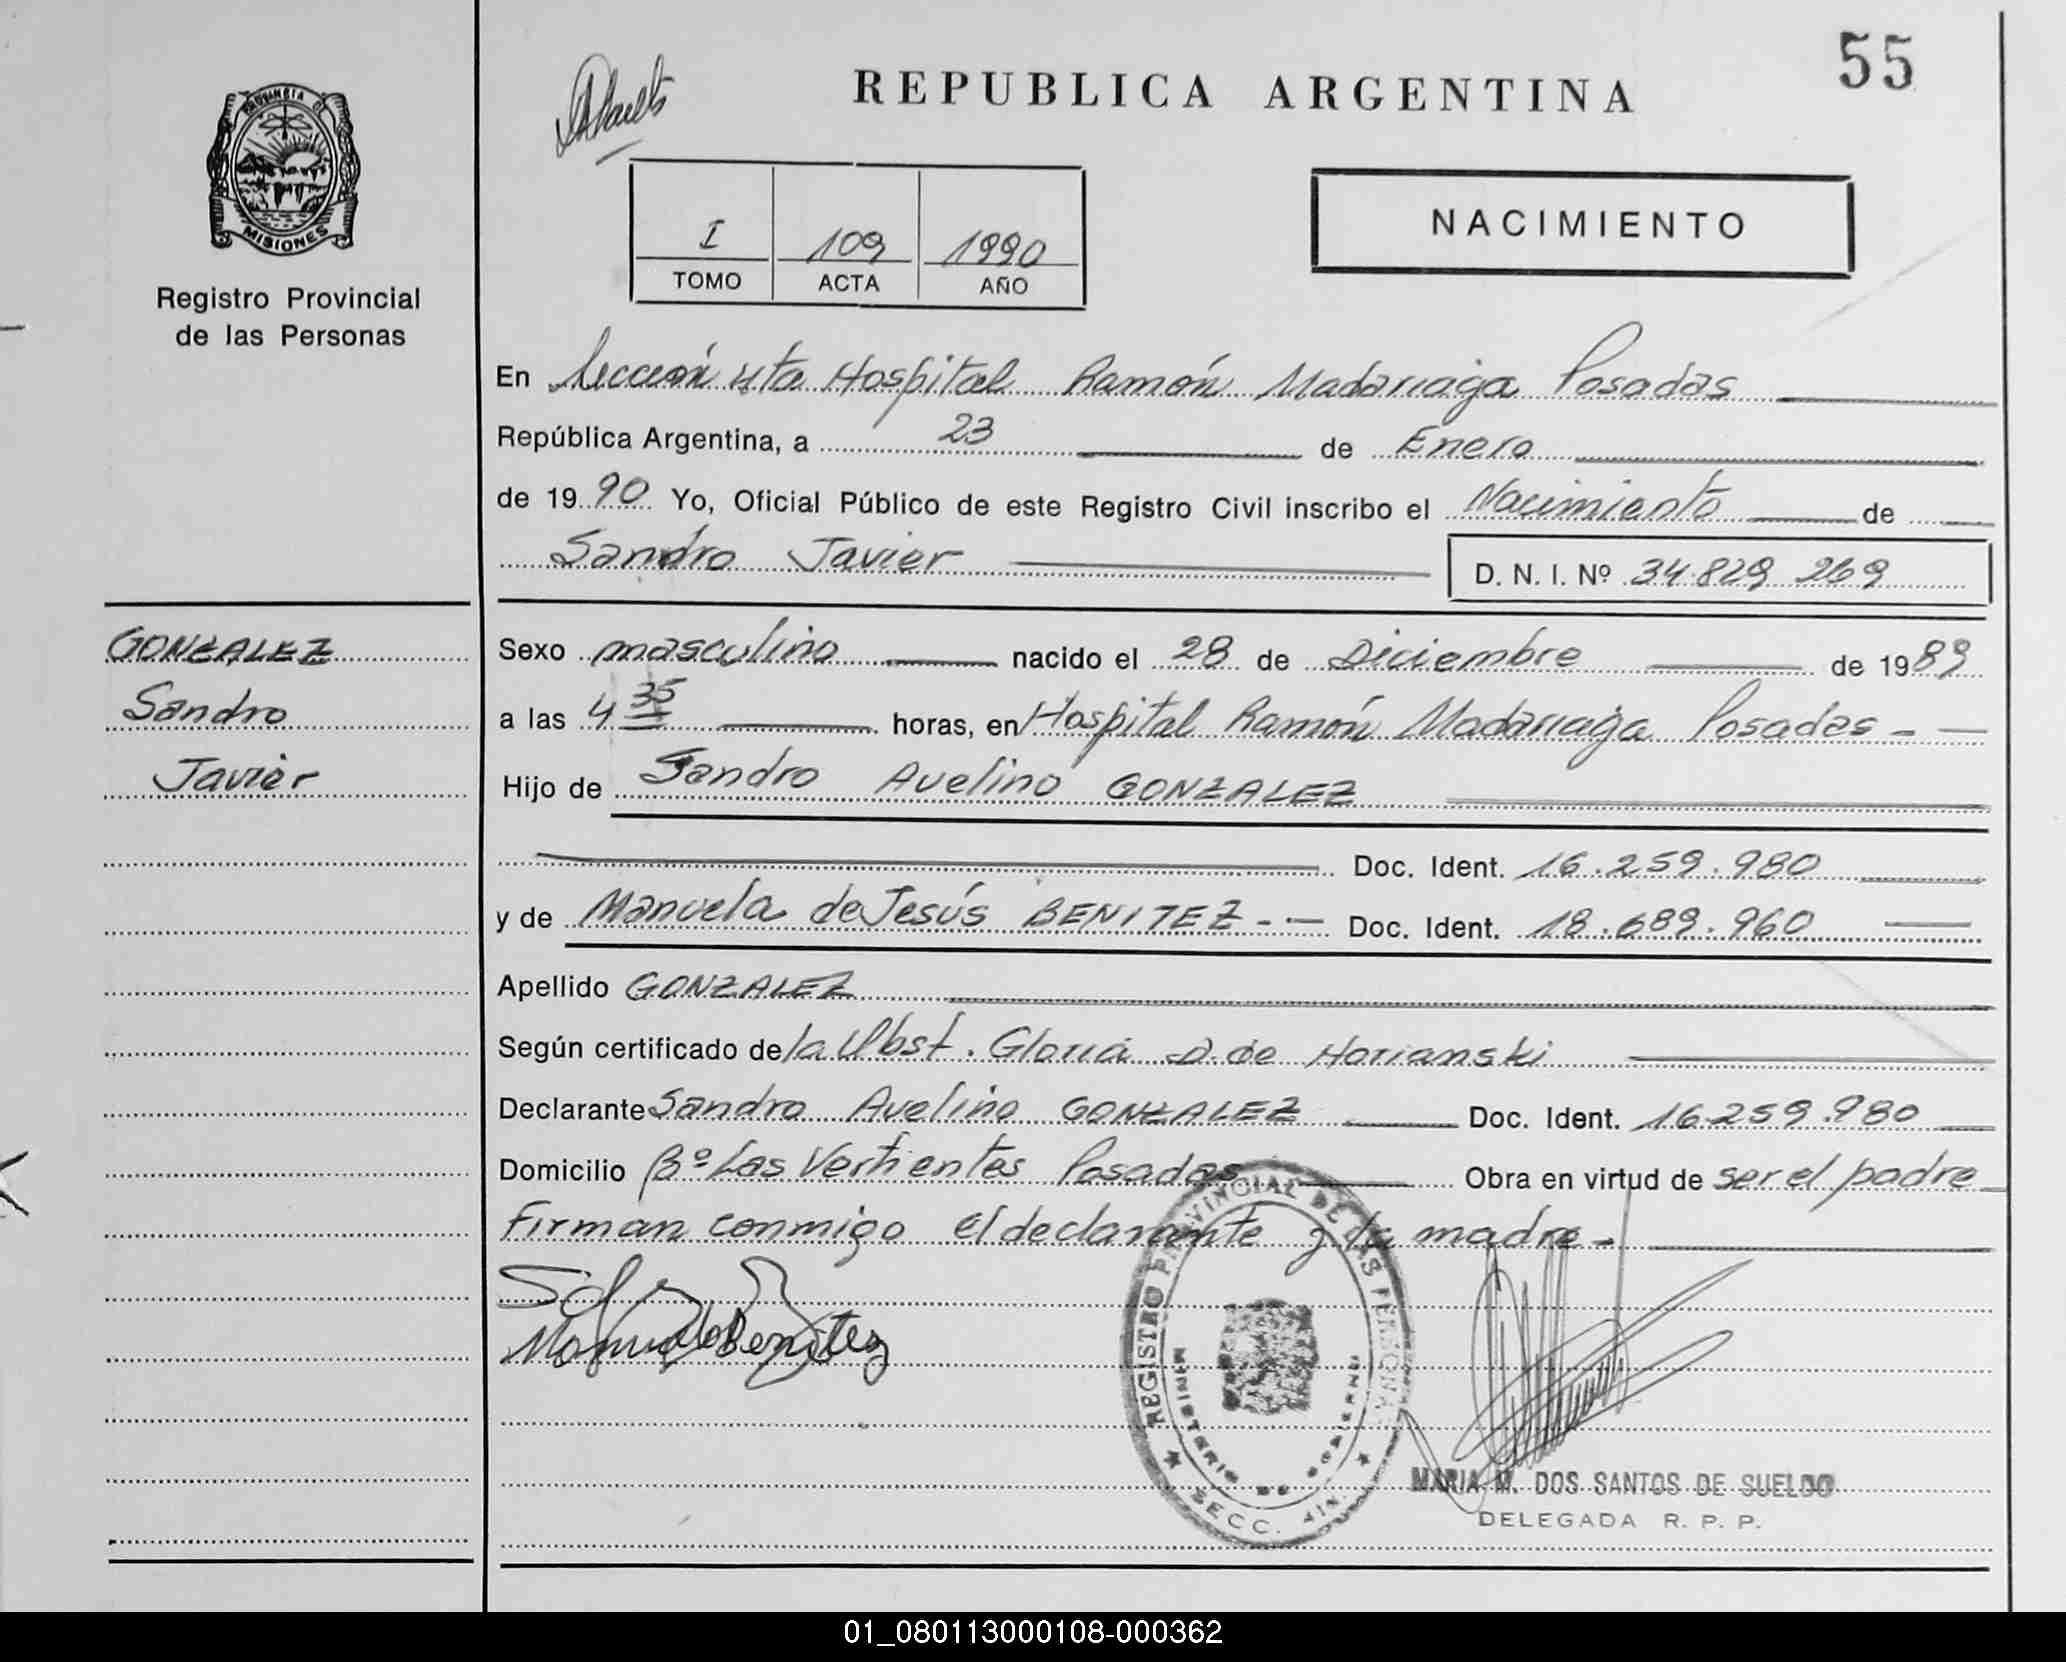 55
REPUBLICA ARGENTINA
PROVINCIA DE
MISIONES
Registro Provincial
de las Personas
NACIMIENTO
I 109 1990
TOMO ACTA AÑO
En Sección 4ta Hospital Ramón Madariaga Posadas
República Argentina, a 23 de Enero
de 1990 Yo, Oficial Público de este Registro Civil inscribo el Nacimiento de
Sandro Javier
D. N. I. Nº 34.829 269
GONZALEZ
Sandro
Javier
Sexo masculino nacido el 28 de Diciembre de 1989
a las 4 35 horas, en Hospital Ramón Madariaga Posadas -
Hijo de Sandro Avelino GONZALEZ
Doc. Ident. 16.259.980
y de Manuela de Jesús BENITEZ - Doc. Ident. 18.689.960
Apellido GONZALEZ
Según certificado de la Obst. Gloria D. de Horianski
Declarante Sandro Avelino GONZALEZ Doc. Ident. 16.259.980
Domicilio Bº Las Vertientes Posadas Obra en virtud de ser el padre
Firman conmigo el declarante y la madre -
Manuela Benitez
REGISTRO PROVINCIAL DE LAS PERSONAS
MINISTERIO DE GOBIERNO
SECC.
MARIA M. DOS SANTOS DE SUELDO
DELEGADA R. P. P.
01_080113000108-000362